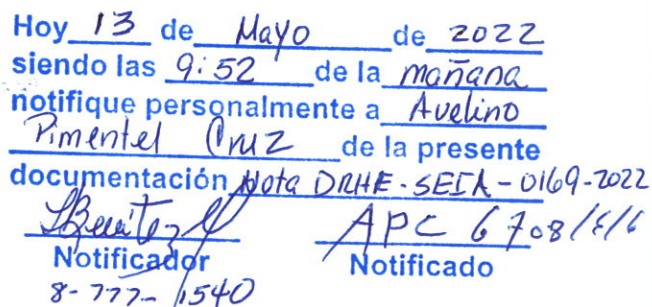 Hoy 13 de Mayo de 2022
siendo las 9:52 de la mañana
notifique personalmente a Avelino
Pimentel Cruz de la presente
documentación Nota DRHE-SEIA-0169-2022
APC
Notificador Notificado
8-777-1540